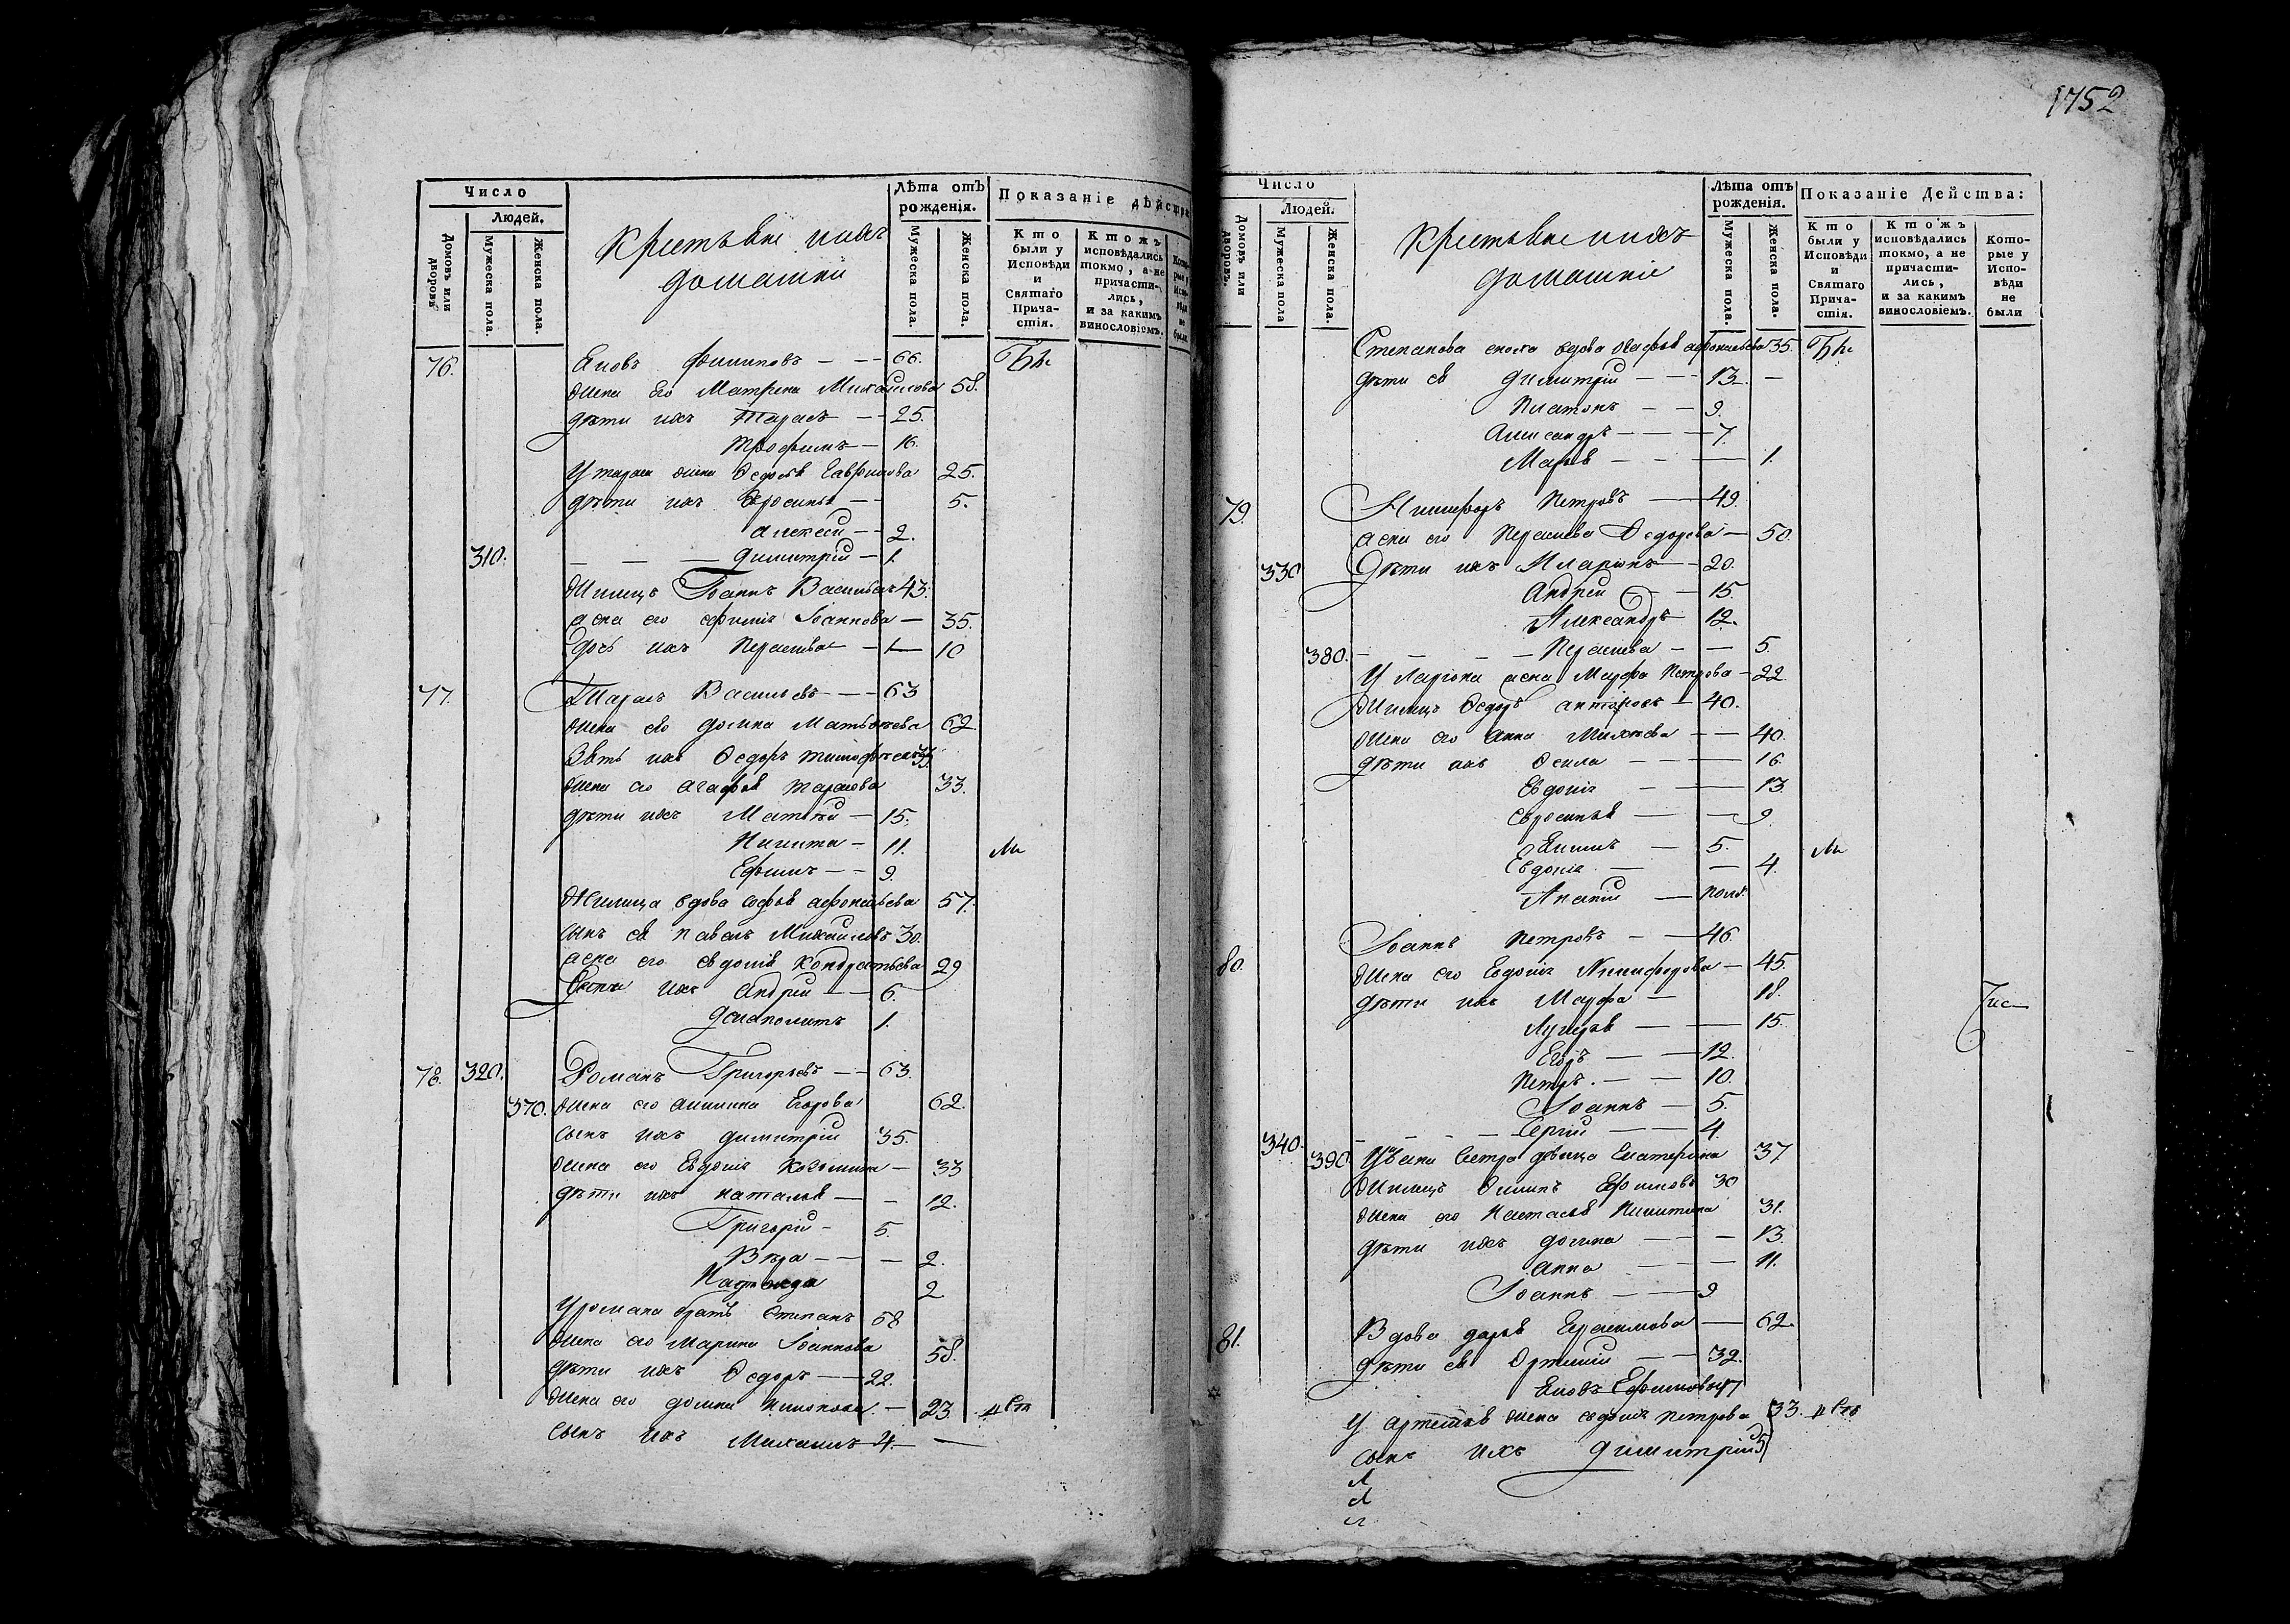 1752
Число
Людей.
Домовъ или дворовъ
Мужеска пола.
Женска пола.
Крестьяне и ихъ
домашніи
Лѣта отъ
рожденія.
Мужеска пола.
Женска пола.
Показаніе дѣйст
Кто были у Исповѣди и Святаго Прича-стія.
Ктожъ исповѣдались токмо, а не причасти-лись, и за какимъ винословіемъ.
76. Яковъ Филиповъ — — 66.
жена его Матрена Михайлова 58.
дѣти ихъ Тарасъ — — 25.
Трофимъ — 16.
У тараса жена Ѳедосья Гаврилова 25.
дѣти ихъ Ефросинья — — 5.
Алексѣй — — 2.
310. — — — Димитрій — 1.
Жилецъ Іоаннъ Васильевъ 43.
жена его ефимія Іоаннова — 35.
дочь ихъ Параскева — — 10
77. Тарасъ Васильевъ — — — 63
жена его домна Матвѣева 62
Зять ихъ Ѳедоръ тимофѣевъ
жена его агафья тарасова 33.
дѣти ихъ Матвѣй — 15.
Никита — 11.
Ефимъ — — 9.
Жилица вдова софья афонасьева 57.
сынъ ея павелъ Михаиловъ 30.
жена его евдокія кондратьева 29
дѣти ихъ андрей — — 6.
1.
78. 320. Романъ Григорьевъ — — 63.
370. жена его акилина Егорова 62.
сынъ ихъ димитрій 35.
жена его Евдокія Козьмина — 33
дѣти ихъ наталья — — 12.
Григорій — 5.
Вѣра — — — 2.
2
У романа братъ Степанъ 58
жена его марина Іоаннова 58.
дѣти ихъ Ѳедоръ — — 22.
жена его домна — 23.
сынъ ихъ Михаилъ — 4. —
Число
Людей.
Домовъ или дворовъ.
Мужеска пола
Женска пола.
Крестьяне и ихъ
домашніе
Лѣта отъ
рожденія.
Мужеска пола.
Женска пола.
Показаніе Дейсшва:
Кто были у Исповѣди и Святаго Прича-стія.
Ктожъ исповѣдались токмо, а не причасти-лись, и за какимъ винословіемъ.
Кото-рые у Испо-вѣди не были
Степанова сноха вдова афонасьева 35.
дѣти ея Димитрій — — 13. —
Платонъ — — 9.
Александръ — — — 7.
Марья — — — 1.
79. Никифоръ Петровъ — — 49.
жена его Параскева Ѳедорова — 50.
330 Дѣти ихъ Иларіонъ — — 20.
Андрей — — 15.
Александръ — 12.
380. — — — — Параскева — — 5.
У Ларіона жена Марфа Петрова — 22.
Жилецъ Ѳедоръ — 40.
жена его анна Михеева — — 40.
дѣти ихъ Ѳекла — — — 16.
Евдокія — — 13.
ефросинья — — 9.
Якимъ — 5.
Евдокія — — 4.
Ананій —
80. Іоаннъ Петровъ — — 46.
жена его Евдокія Никифорова — 45.
дѣти ихъ Марфа — 18.
Лукерья — — 15.
Егоръ — — 12.
Петръ. — — 10.
Іоаннъ — 5.
340. — — — — Сергій — — 4.
390. сестра дѣвица Екатерина 37
Жилецъ Ефимовъ 30
жена его Настасья Никитина 31.
дѣти ихъ домна — — — 13.
анна — — — 11.
Іоаннъ — — 9
81. Вдова дарья Герасимова — 62.
дѣти ея Артемій — — 32.
Яковъ Ефимовъ 17
У артемья жена евдокія петрова 33.
сынъ ихъ Димитрій 5